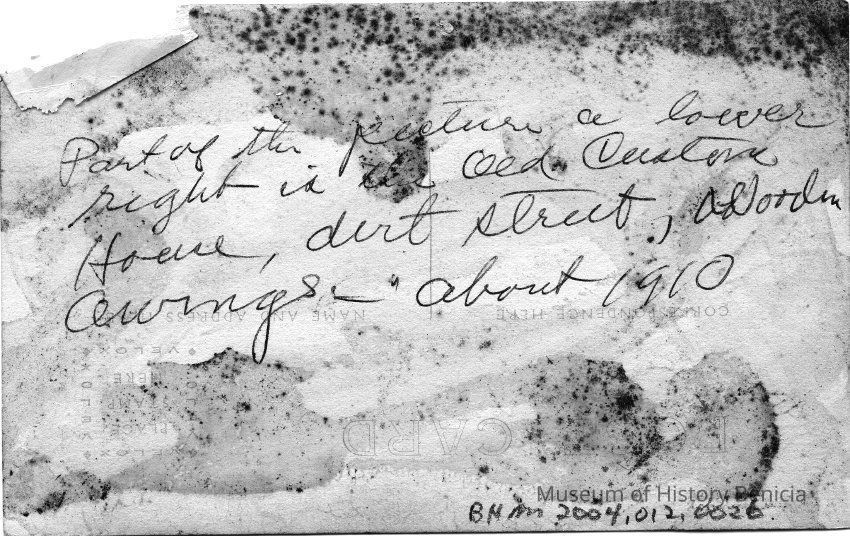 Part of the picture a lower
right is the Old Custom
House, dirt street, Wooden
awnings — about 1910
NAME AND ADDRESS
CORRESPONDENCE HERE
VELOX
HERE
STAMP
PLACE
VELOX
CARD
Museum of History Benicia
BHM 2004.012.0026